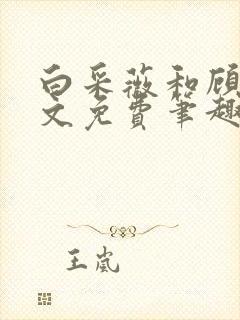 白采薇和顾
文免费笔趣
王岚